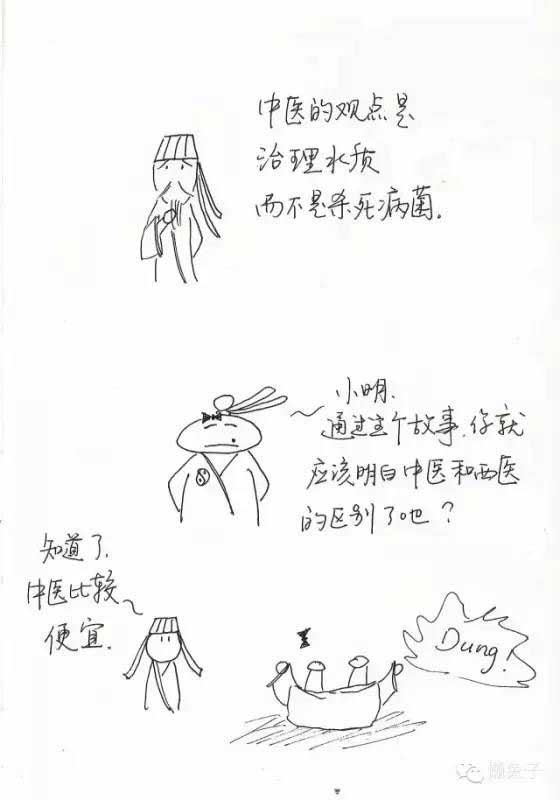 中医的观点是
治理水质
而不是杀死病菌.
小明.
通过这个故事.你就
应该明白中医和西医
的区别了吧?
知道了.
中医比较
便宜.
Dung!
懒兔子